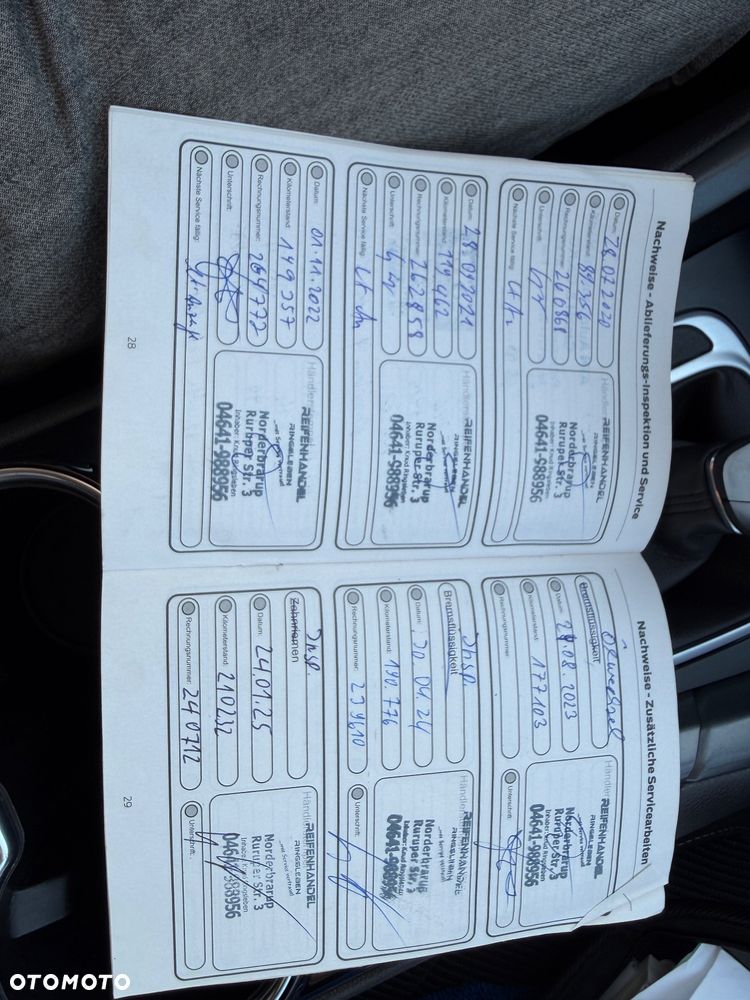 Nachweise - Ablieferungs-Inspektion und Service
Datum: 28.07.2020
Kilometerstand: 89.356
Rechnungsnummer: 260868
Unterschrift:
Nächste Service fällig:
Händler
REIFENHANDEL
RINGELEBEN
Norderbrarup
Ruruper Str. 3
Inhaber: Knud Ringeleben
04641-988956
Datum: 28.09.2021
Kilometerstand: 119462
Rechnungsnummer: 262858
Unterschrift:
Nächste Service fällig:
Händler
REIFENHANDEL
RINGELEBEN
Norderbrarup
Ruruper Str. 3
Inhaber: Knud Ringeleben
04641-988956
Datum: 01.11.2022
Kilometerstand: 149257
Rechnungsnummer: 264772
Unterschrift:
Nächste Service fällig:
Händler
REIFENHANDEL
RINGELEBEN
...mit Service vertraut
Norderbrarup
Ruruper Str. 3
Inhaber: Knud Ringeleben
04641-988956
28
Nachweise - Zusätzliche Servicearbeiten
Ölwechsel
Bremsflüssigkeit
Datum: 29.08.2023
Kilometerstand: 177103
Rechnungsnummer:
Unterschrift:
Händler
REIFENHANDEL
RINGELEBEN
Norderbrarup
Ruruper Str. 3
04641-988956
Insp.
Bremsflüssigkeit
Datum: 30.04.24
Kilometerstand: 190.776
Rechnungsnummer: 239610
Unterschrift:
Händler
REIFENHANDEL
RINGELEBEN
Norderbrarup
Ruruper Str. 3
04641-988956
Insp.
Zahnriemen
Datum: 24.01.25
Kilometerstand: 210232
Rechnungsnummer: 240712
Unterschrift:
Händler
REIFENHANDEL
RINGELEBEN
...mit Service vertraut
Norderbrarup
Ruruper Str. 3
Inhaber: Knud Ringeleben
04641-988956
29
OTOMOTO